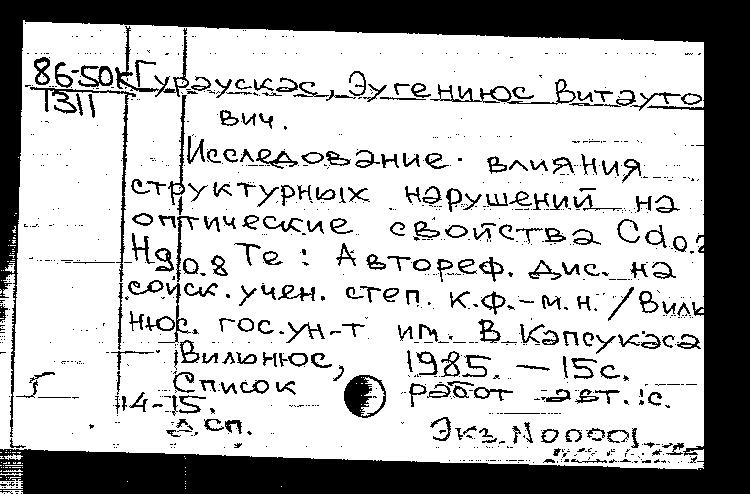 86-50к Гураускас, Эугениюс Витауто
1311
вич.
Исследование влияния
структурных нарушений на
оптические свойства Cd0.2
Hg0.8 Te : Автореф. дис. на
соиск. учен. степ. к.ф.-м.н. / Виль
нюс. гос. ун-т им. В Капсукаса
Вильнюс, 1985. — 15с.
Список работ авт. : с.
14-15.
Дсп. Экз. N 00001